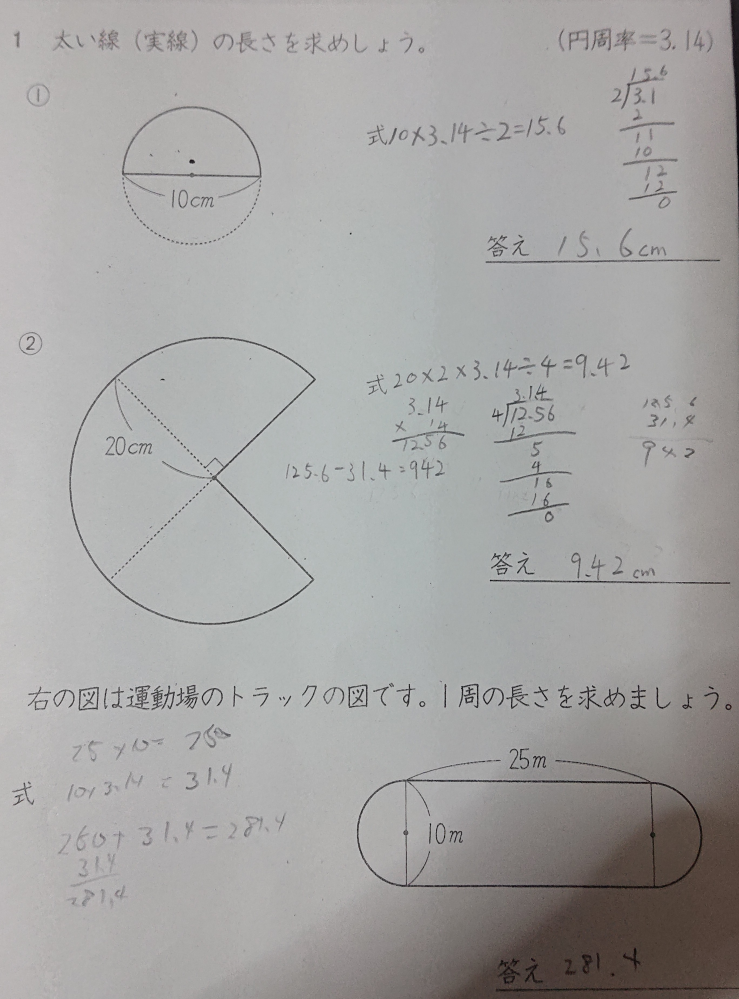 1 太い線（実線）の長さを求めしょう。 （円周率＝3.14）
①
10cm
式10×3.14÷2=15.6
15.6
2/3.1
2
11
10
12
12
0
答え 15.6cm
②
20cm
式20×2×3.14÷4=9.42
3.14
× 14
1256
3.14
4/12.56
12
5
4
16
16
0
125.6
31.4
942
125.6-31.4=942
答え 9.42cm
右の図は運動場のトラックの図です。1周の長さを求めましょう。
25×10=250
式 10×3.14=31.4
250+31.4=281.4
31.4
281.4
25m
10m
答え 281.4